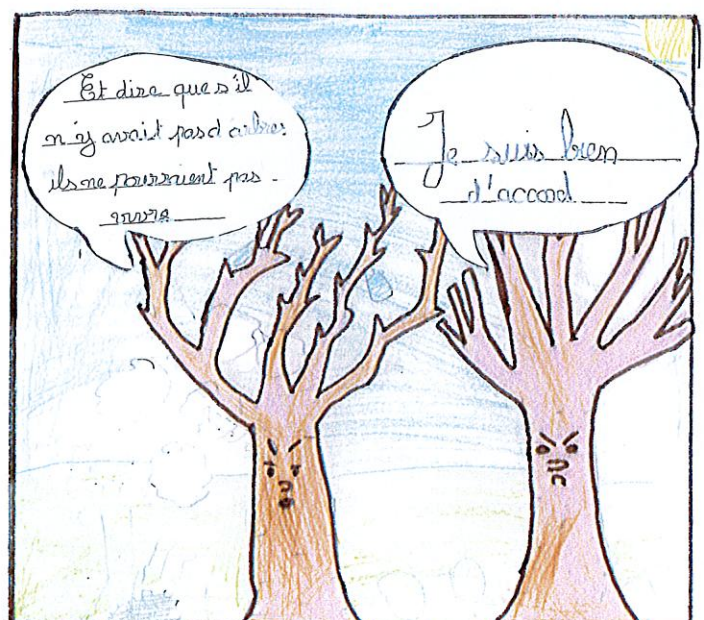 Et dire que s'il
n'y avait pas d'arbres
ils ne pourraient pas
vivre
Je suis bien
d'accord